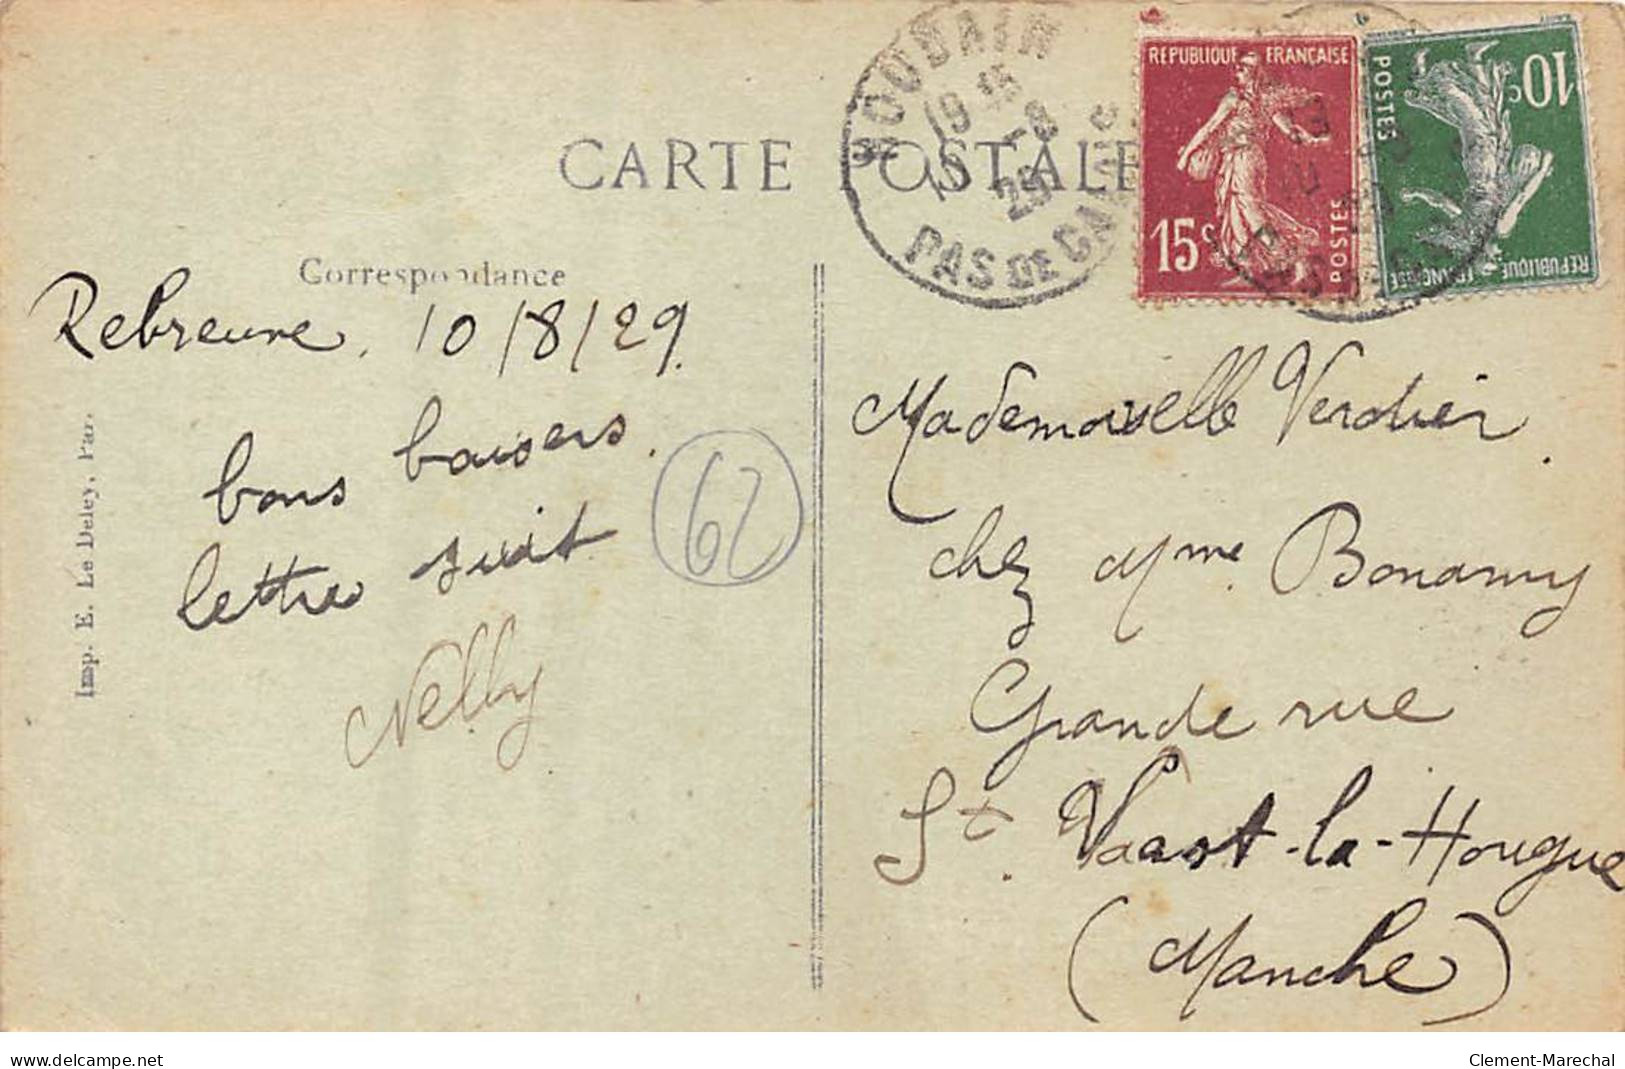 CARTE POSTALE
HOUDAIN
19 15
10 -8
29
PAS DE CALAIS
REPUBLIQUE FRANÇAISE
15c
POSTES
10c
POSTES
REPUBLIQUE FRANÇAISE
Correspondance
Rebreuve, 10/8/29.
bons baisers.
lettre suit
Nelly
62
Imp. E. Le Deley, Par.
Mademoiselle Verdier.
chez Mme Bonamy
Grande rue
St. Vaast-la-Hougue
(Manche)
delcampe.net
Clement-Marechal